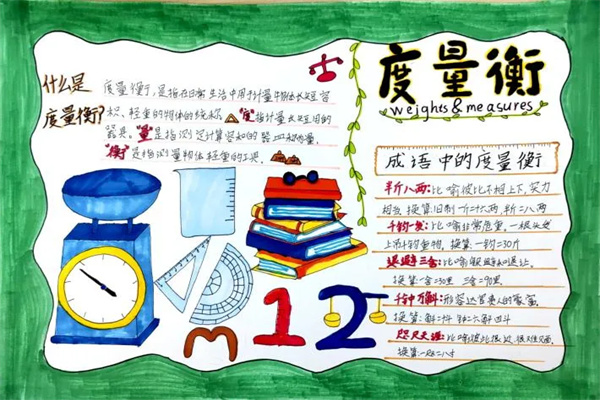 度量衡
weights & measures
什么是
度量衡?
度量衡,是指在日常生活中用于计量物体长短容
积、轻重的物体的统称。"度"指计量长短用的
器具。"量"是指测定计算容积的器皿和容量。
"衡"是指测量物体轻重的工具。
m 1 2
成语中的度量衡
半斤八两:比喻彼此不相上下,实力
相当 换算:旧制一斤=十六两,半斤=八两
千钧一发:比喻非常危重,一根头发
上吊千钧重物,换算:一钧=30斤
退避三舍:比喻退让。
换算:一舍=30里 三舍=90里
千钟万斛:形容达官贵人的家
换算:
咫尺天涯:比喻彼此很近,很难见面
换算:一咫=八寸